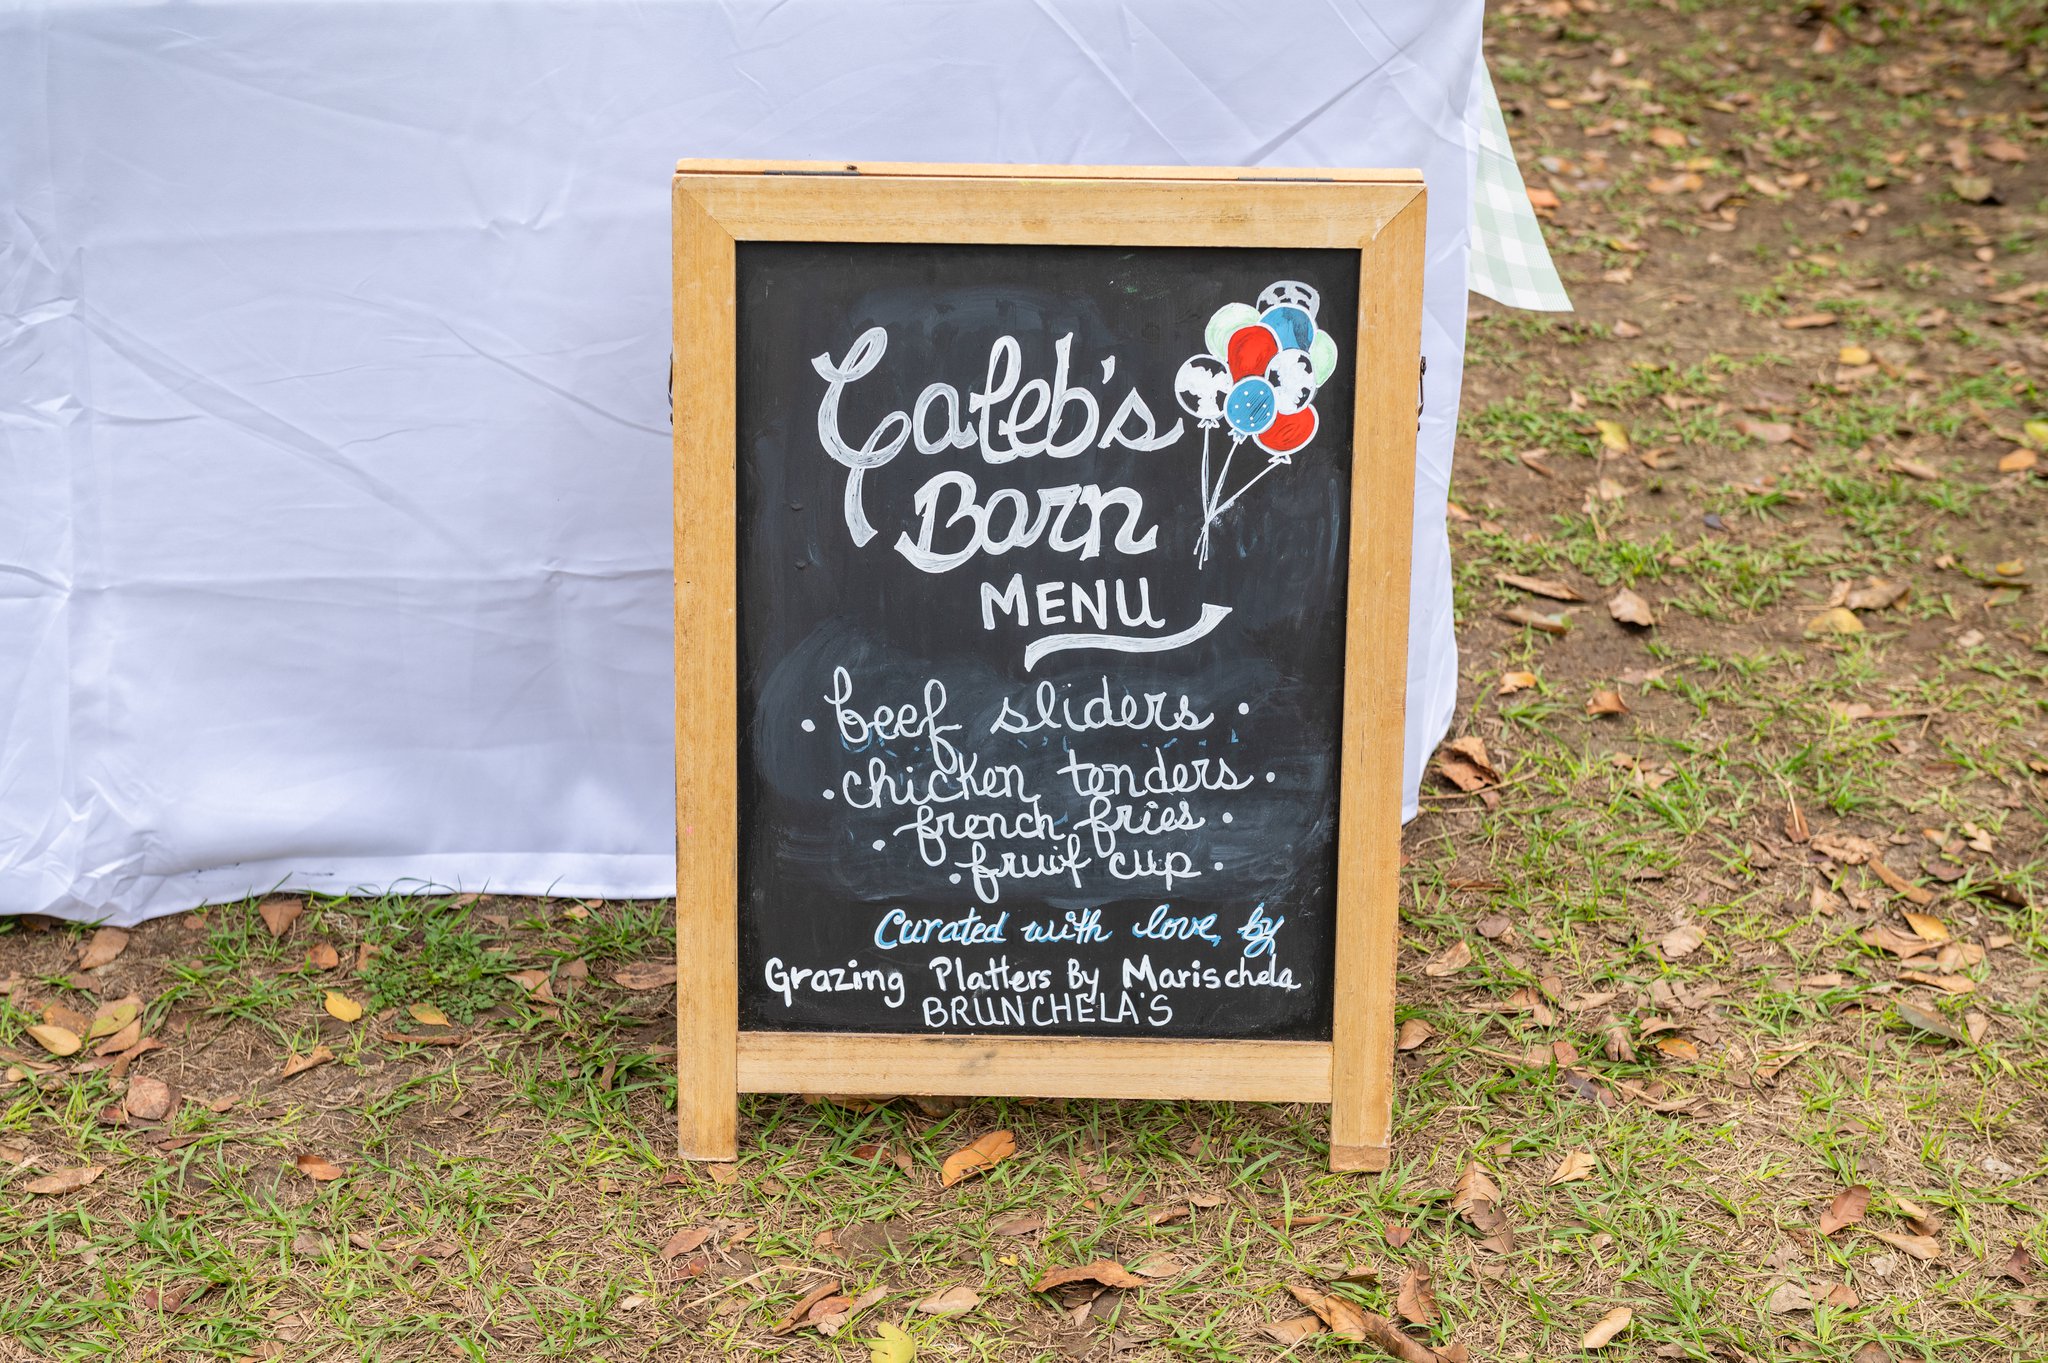 Caleb's
Barn
MENU
· beef sliders ·
· chicken tenders ·
· french fries ·
· fruit cup ·
Curated with love, by
Grazing Platters By Marischela
BRUNCHELA'S